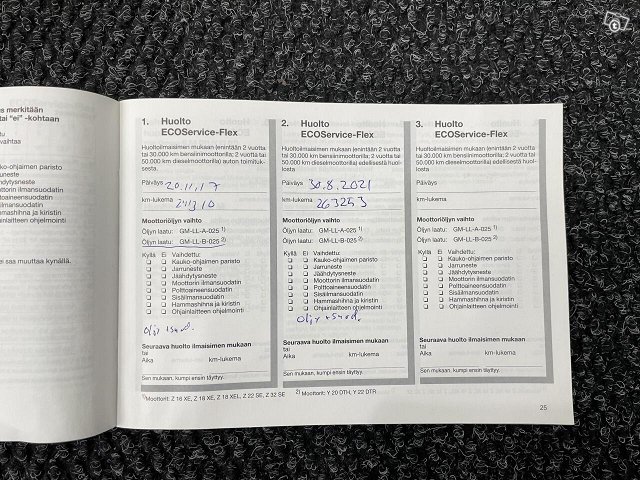 s merkitään
tai "ei" -kohtaan
tu
vaihtaa
ko-ohjaimen paristo
runeste
ähdytysneste
ottorin ilmansuodatin
lttoaineensuodatin
ilmansuodatin
mmashihna ja kiristin
ainlaitteen ohjelmointi
ei saa muuttaa kynällä.
1. Huolto
ECOService-Flex
Huoltoilmaisimen mukaan (enintään 2 vuotta
tai 30.000 km bensiinimoottorilla; 2 vuotta tai
50.000 km dieselmoottorilla) auton toimituk-
sesta.
Päiväys 20.11.17
km-lukema
Moottoriöljyn vaihto
Öljyn laatu: GM-LL-A-025 1)
Öljyn laatu: GM-LL-B-025 2)
Kyllä Ei Vaihdettu:
❏ ❏ Kauko-ohjaimen paristo
❏ ❏ Jarruneste
❏ ❏ Jäähdytysneste
❏ ❏ Moottorin ilmansuodatin
❏ ❏ Polttoaineensuodatin
❏ ❏ Sisäilmansuodatin
❏ ❏ Hammashihna ja kiristin
❏ ❏ Ohjainlaitteen ohjelmointi
öljy + suod.
Seuraava huolto ilmaisimen mukaan
tai
Aika km-lukema
Sen mukaan, kumpi ensin täyttyy.
2. Huolto
ECOService-Flex
Huoltoilmaisimen mukaan (enintään 2 vuotta
tai 30.000 km bensiinimoottorilla; 2 vuotta tai
50.000 km dieselmoottorilla) edellisestä huol-
losta
Päiväys 30.8.2021
km-lukema 263253
Moottoriöljyn vaihto
Öljyn laatu: GM-LL-A-025 1)
Öljyn laatu: GM-LL-B-025 2)
Kyllä Ei Vaihdettu:
❏ ❏ Kauko-ohjaimen paristo
❏ ❏ Jarruneste
❏ ❏ Jäähdytysneste
❏ ❏ Moottorin ilmansuodatin
❏ ❏ Polttoaineensuodatin
❏ ❏ Sisäilmansuodatin
❏ ❏ Hammashihna ja kiristin
❏ ❏ Ohjainlaitteen ohjelmointi
Öljy + suod.
Seuraava huolto ilmaisimen mukaan
tai
Aika km-lukema
Sen mukaan, kumpi ensin täyttyy.
3. Huolto
ECOService-Flex
Huoltoilmaisimen mukaan (enintään 2 vuotta
tai 30.000 km bensiinimoottorilla; 2 vuotta tai
50.000 km dieselmoottorilla) edellisestä huol-
losta
Päiväys
km-lukema
Moottoriöljyn vaihto
Öljyn laatu: GM-LL-A-025 1)
Öljyn laatu: GM-LL-B-025 2)
Kyllä Ei Vaihdettu:
❏ ❏ Kauko-ohjaimen paristo
❏ ❏ Jarruneste
❏ ❏ Jäähdytysneste
❏ ❏ Moottorin ilmansuodatin
❏ ❏ Polttoaineensuodatin
❏ ❏ Sisäilmansuodatin
❏ ❏ Hammashihna ja kiristin
❏ ❏ Ohjainlaitteen ohjelmointi
Seuraava huolto ilmaisimen mukaan
tai
Aika km-lukema
Sen mukaan, kumpi ensin täyttyy.
1) Moottorit: Z 16 XE, Z 18 XE, Z 18 XEL, Z 22 SE, Z 32 SE
2) Moottorit: Y 20 DTH, Y 22 DTR
25